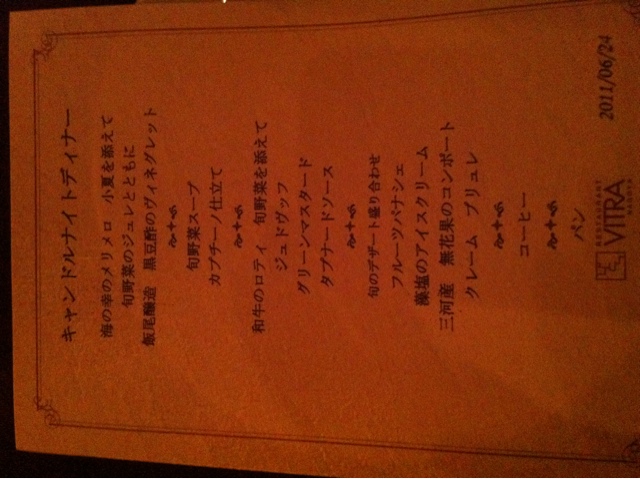 キャンドルナイトディナー
海の幸のメリメロ　小夏を添えて
旬野菜のジュレとともに
飯尾醸造　黒豆酢のヴィネグレット
旬野菜スープ
カプチーノ仕立て
和牛のロティ　旬野菜を添えて
ジュドヴッフ
グリーンマスタード
タプナードソース
旬のデザート盛り合わせ
フルーツパナシェ
藻塩のアイスクリーム
三河産　無花果のコンポート
クレーム　ブリュレ
コーヒー
パン
RESTAURANT
VITRA
2011/06/24